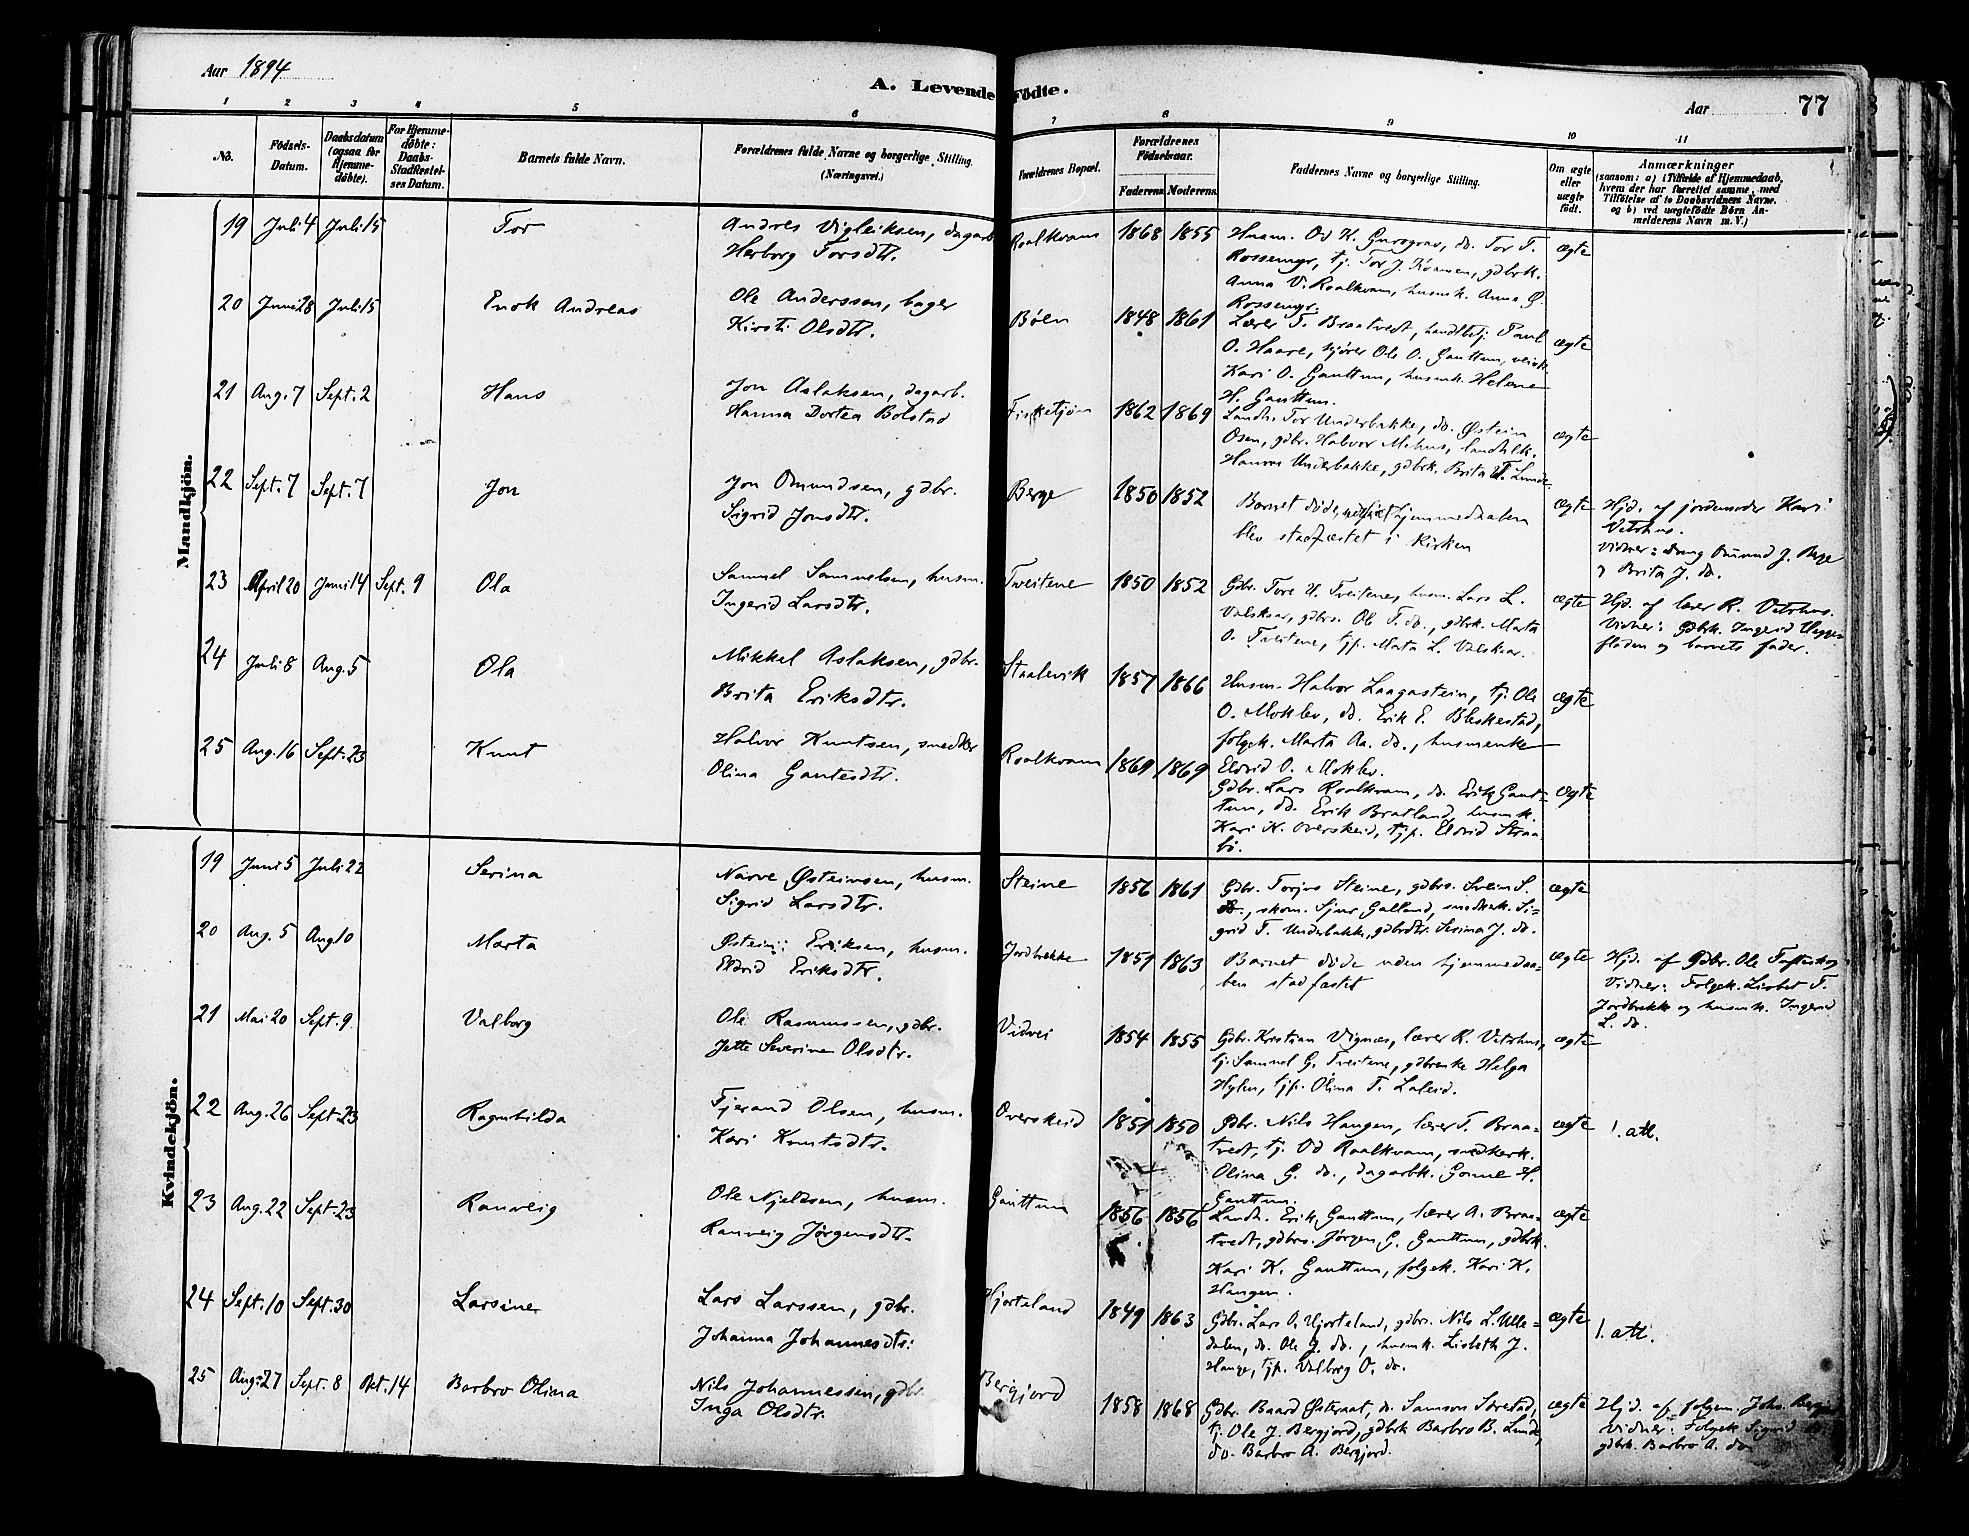 Aar 1894
A. Levende Fødte.
Aar
77
1 2 3 4 5 6 7 8 9 10 11
No.
Fødsels-Datum.
Daabsdatum (ogsaa for Hjemme-døbte).
For Hjemme-døbte: Daabs-Stadfæstel-ses Datum.
Barnets fulde Navn.
Forældrenes fulde Navne og borgerlige Stilling. (Næringsvei.)
Forældrenes Bopæl.
Forældrenes Fødselsaar.
Faderens. Moderens.
Faddernes Navne og borgerlige Stilling.
Om ægte eller uægte født.
Anmærkninger
(saasom: a) i Tilfælde af Hjemmedaab, hvem der har forrettet samme, med Tilføielse af to Daabsvidners Navne. og b) ved uægtefødte Børn An-melderens Navn m. V.)
Mandkjön.
19 Juli 4 Juli 15 Tor
Andres Vigleiksen, dagarb.
Herborg Torsdtr.
Roalkvam 1868 1855
Husm. Od H. Gursgrav, do. Tor T.
Rossemyr, tj. Tor J. , gdbrk.
Anna V. Roalkvam, husmk. Anna Ø.
Rossemyr.
ægte
20 Juni 28 Juli 15 Enok Andreas
Ole Anderssen, bager
Kirsti Olsdtr.
Bøen 1848 1861
Lærer T. Braatvedt, handlbtj. Paul
O. Haare, kjører Ole O. Gauttun,
Kari O. Gauttun, husmk. Helene
H. Gauttun.
ægte
21 Aug. 7 Sept. 2 Hans
Jon Aslaksen, dagarb.
Hanna Dortea Bolstad
Fisketjøn 1862 1869
Landh. Tor Underbakke, do. Østein
Osen, gdbr. Halvor Mehus, landhlk.
Hanna Underbakke, gdbrk. Brita T. Lunde.
ægte
22 Sept. 7 Sept. 7 Jon
Jon Omundsen, gdbr.
Sigrid Jonsdtr.
Berge 1850 1852
Barnet døde, hjemmedaaben
blev stadfæstet i Kirken
ægte
Hjd. af jordemoder Kari
Vetrhus.
Vidner: Dreng Omund J. Berge
og Brita J. do.
23 April 20 Juni 14 Sept. 9 Ola
Samuel Samuelsen, husm.
Ingerid Larsdtr.
Tveitene 1850 1852
Gdbr. Tore U. Tveitene, husm. Lars L.
Valskaar, gdbrs. Ole T. do., gdbrk. Marta
O. Tveitene, tjp. Marta L. Valskaar.
ægte
Hjd. af lærer R. Vetrhus.
Vidner: Gdbrk. Ingerid Hegger-
fladen og barnets fader.
24 Juli 8 Aug. 5 Ola
Mikkel Aslaksen, gdbr.
Brita Eriksdtr.
Staalevik 1857 1866
Husm. Halvor Laagastein, tj. Ole
O. Moklev, do. Erik E. Bleskestad,
folgek. Marta Aa. do., husmenke
Eldrid O. Moklev.
ægte
25 Aug. 16 Sept. 23 Knut
Halvor Knutsen, snedker
Olina Gautesdtr.
Roalkvam 1869 1869
Gdbr. Lars Roalkvam, do. Erik Gaut-
tun, do. Erik Bratland, husmk.
Kari K. Overskeid, tjp. Eldrid Straa-
bø.
ægte
Kvindekjön.
19 Juni 5 Juli 22 Serina
Narve Østeinsen, husm.
Sigrid Larsdtr.
Steine 1856 1861
Gdbr. Torjus Steine, gdbrs. Svein S.
do., skom. Sjur Galland, snedkerk. Si-
grid T. Underbakke, gdbrdtr. Serina J. do.
ægte
20 Aug. 5 Aug 10 Marta
Østein Eriksen, husm.
Eldrid Eriksdtr.
Jordbrekke 1851 1863
Barnet døde uden hjemmedaa-
ben stadfæstet
ægte
Hjd. af Gdbr. Ole
Vidner: Folgek. Lisbet T.
Jordbrekk og husmk. Ingerid
L. do.
21 Mai 20 Sept. 9 Valborg
Ole Rasmussen, gdbr.
Jette Severine Olsdtr.
Vidvei 1854 1855
Gdbr. Kristian Vignæs, lærer R. Vetrhus,
tj. Samuel G. Tveitene, gdbrenke Helga
Hylen, tjp. Olina T. Laleid.
ægte
22 Aug. 26 Sept. 23 Ragnhilda
Tjerand Olsen, husm.
Kari Knutsdtr.
Overskeid 1851 1850
Gdbr. Nils Haugen, lærer T. Braa-
tvedt, tj. Od Roalkvam, snedkerk.
Olina G. do., dagarbk. Gonne H.
Gauttun.
ægte
1. att.
23 Aug. 22 Sept. 23 Ranveig
Ole Njeldsen, husm.
Ranveig Jørgensdtr.
Gauttun 1856 1856
Landh. Erik Gauttun, lærer A. Braa-
tvedt, gdbrs. Jørgen G. Gauttun, gdbrk.
Kari K. Gauttun, folgek. Kari K.
Haugen.
ægte
24 Sept. 10 Sept. 30 Larsine
Lars Larssen, gdbr.
Johanna Johannesdtr.
Hjorteland 1849 1863
Gdbr. Lars O. Hjorteland, gdbrs. Nils L. Ulle-
dalen, do. Ole J. do., husmk. Lisbeth J.
Hauge, tjp. Valborg O. do.
ægte
1. att.
25 Aug. 27 Sept. 8 Okt. 14 Barbro Olina
Nils Johannessen, gdbr.
Inga Olsdtr.
Bergjord 1858 1868
Gdbr. Baard Østeraat, do. Samson Sørestad,
tj. Ole J. Bergjord, gdbrk Barbro B. Lunde,
do. Barbro A. Bergjord.
ægte
Hjd. af folgem. Johs. Bergj
Vidner: Folgek. Sigrid
gdbrk. Barbro A. do